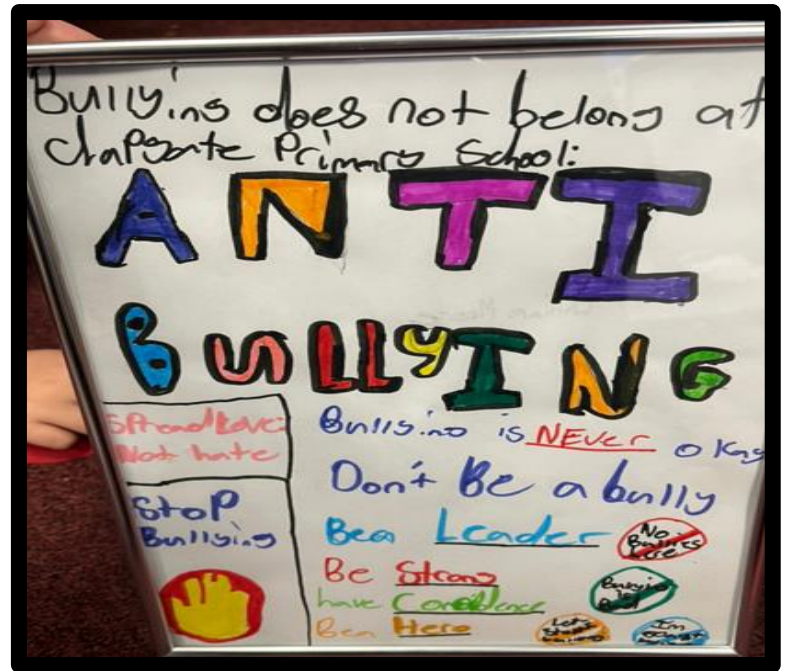 Bullying does not belong at
Clapgate Primary School:
ANTI
BULLYING
Spread Love
Not hate
Stop
Bullying
Bullying is NEVER okay
Don't Be a bully
Be a Leader
Be Strong
have Confidence
Be a Hero
No
Bullies
here